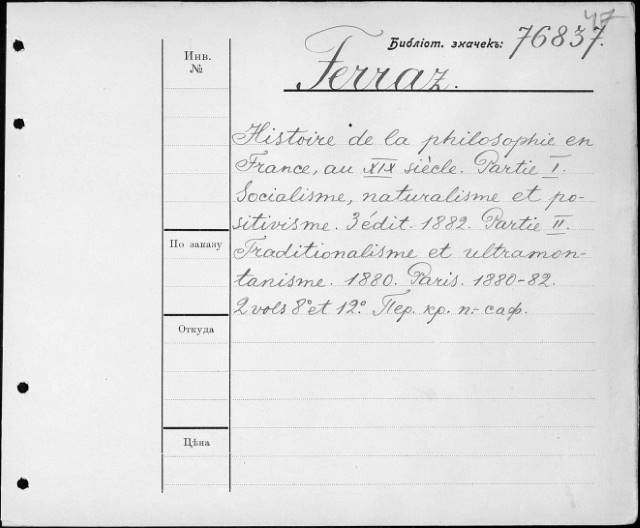 47
Библіот. значекъ: 76837.
Инв.
№
Ferraz.
Histoire de la philosophie en
France, au XIX siècle. Partie I.
Socialisme, naturalisme et po-
sitivisme. 3 édit. 1882. Partie II.
По заказу
Traditionalisme et ultramon-
tanisme. 1880. Paris. 1880-82.
2 vols 8° et 12° Пер. кр. п.- саф.
Откуда
Цѣна